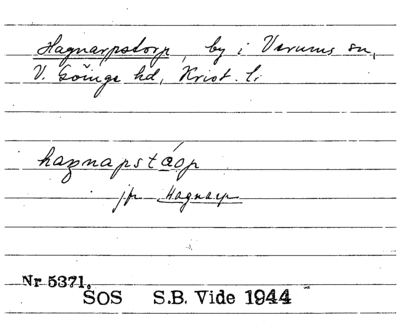 Hagnarpstorp, by i Verums sn,
V. Göinge hd, Krist. l.
hagnapståop
jfr Hagnarp
Nr 5371.
SOS S.B. Vide 1944